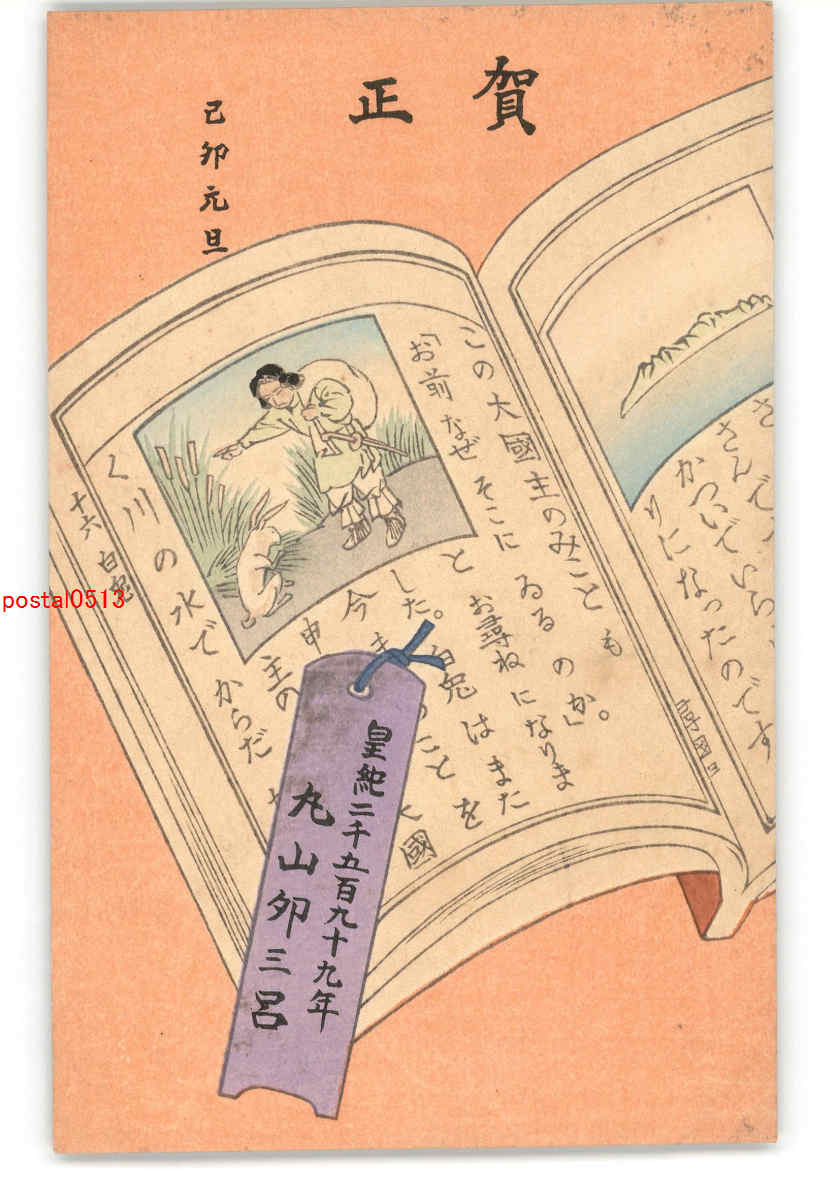 賀正
己卯元旦
さんで、
かついでいら
りになったのです
この大國主のみことも
「お前なぜそこにゐるのか」。
とお尋ねになりま
した。白兎はまた
今ま のことを
申 大國
主の
く川の水でからだ
十六 白兎
皇紀二千五百九十九年
丸山卯三呂
postal0513